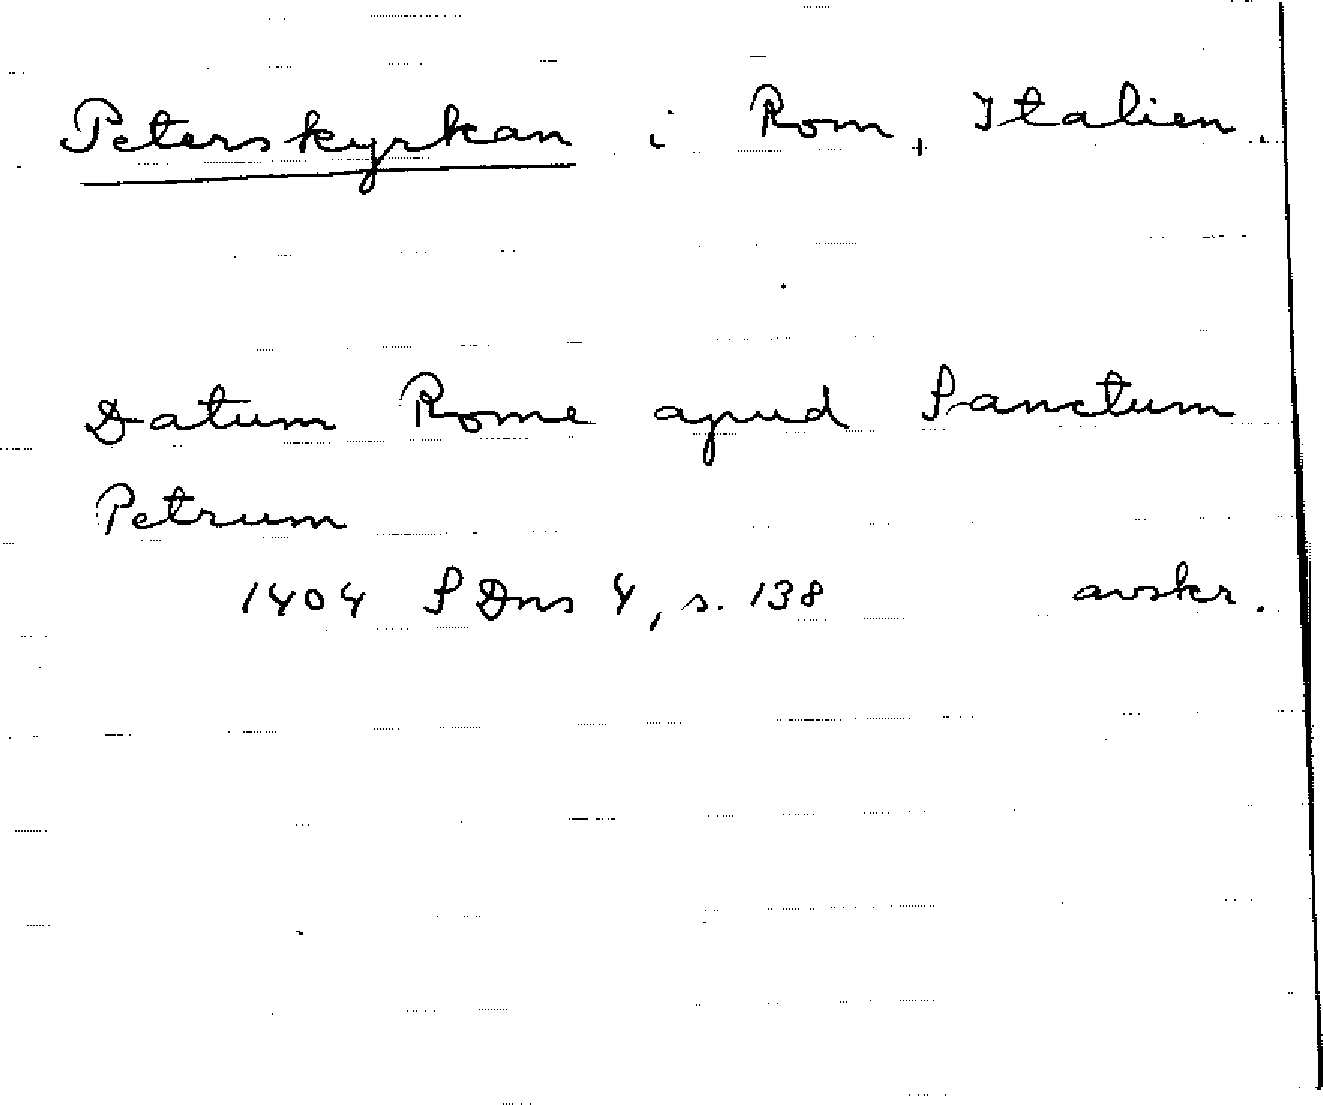 Peterskyrkan i Rom, Italien.
Datum Rome apud Sanctum
Petrum
1404 SDns 4, s. 138 avskr.